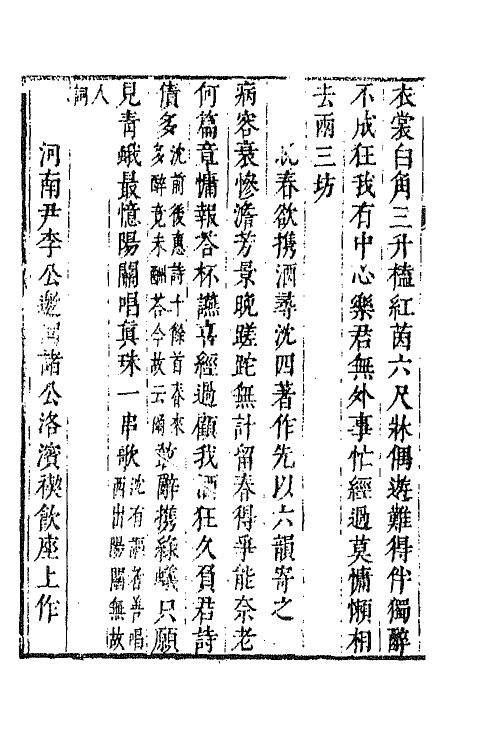 衣裳白角三升榼紅茵六尺牀偶遊難得伴獨醉
不成狂我有中心樂君無外事忙經過莫慵懶相
去兩三坊
春欲携酒尋沈四著作先以六韻寄之
病容衰慘澹芳景晚蹉跎無計留春得爭能奈老
何篇章慵報荅杯讌喜經過顧我酒狂久負君詩
債多沈前後惠詩十餘首春來多醉竟未酬荅今故云爾 醉携綠蟻只願
兒青蛾最憶陽關唱眞珠一串歌沈有謳者善唱西出陽關無故
人詞
河南尹李公邀 諸公洛濱禊飲座上作